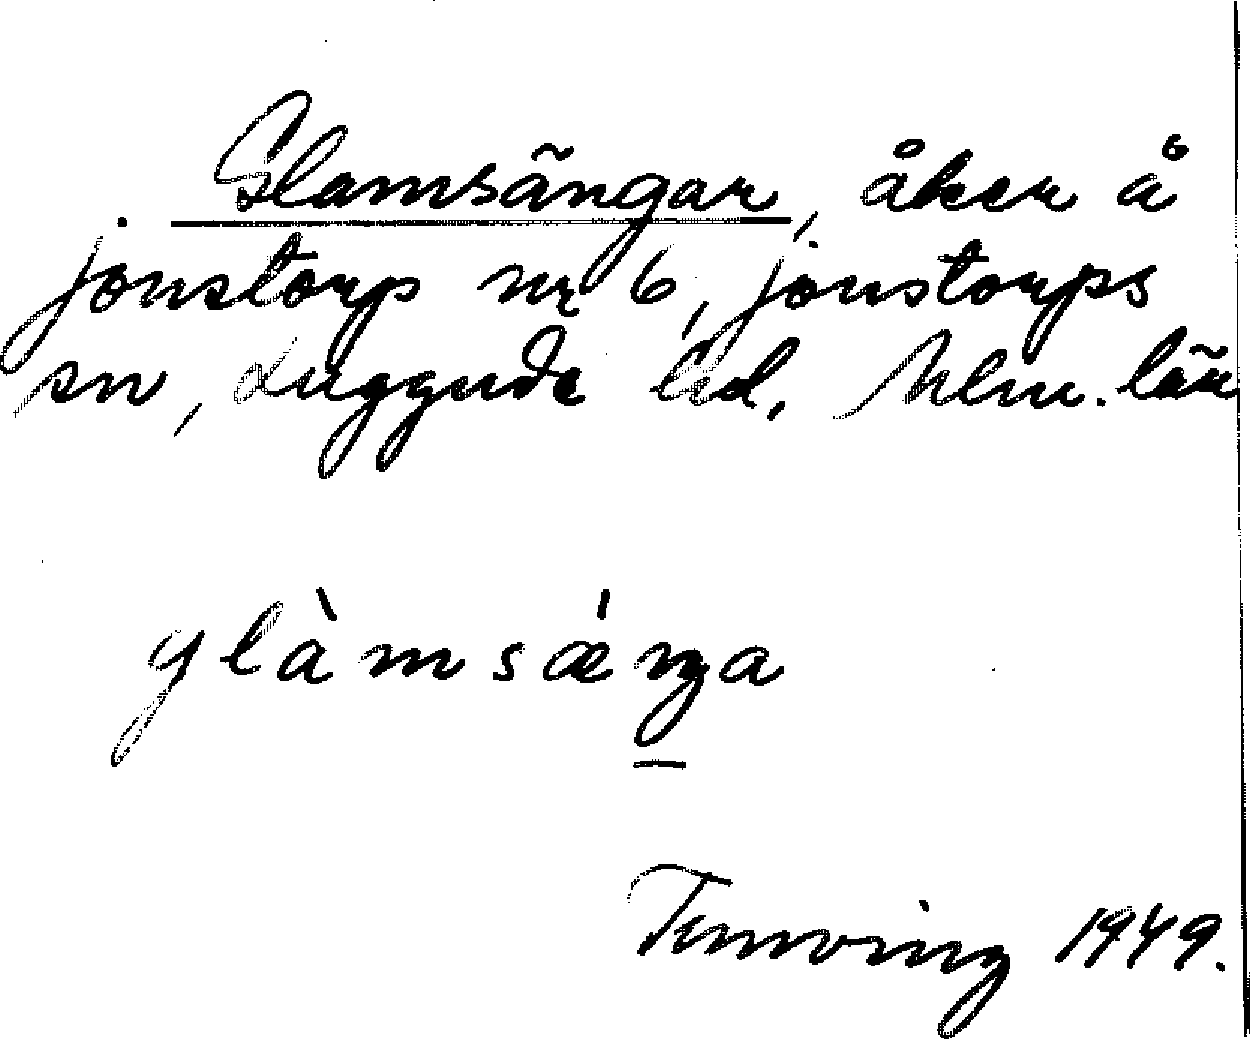 Glamsängar, åker å
Jonstorp nr 6, Jonstorps
sn, Luggude hd, Mlm. län
glàmsǽŋa
1949.